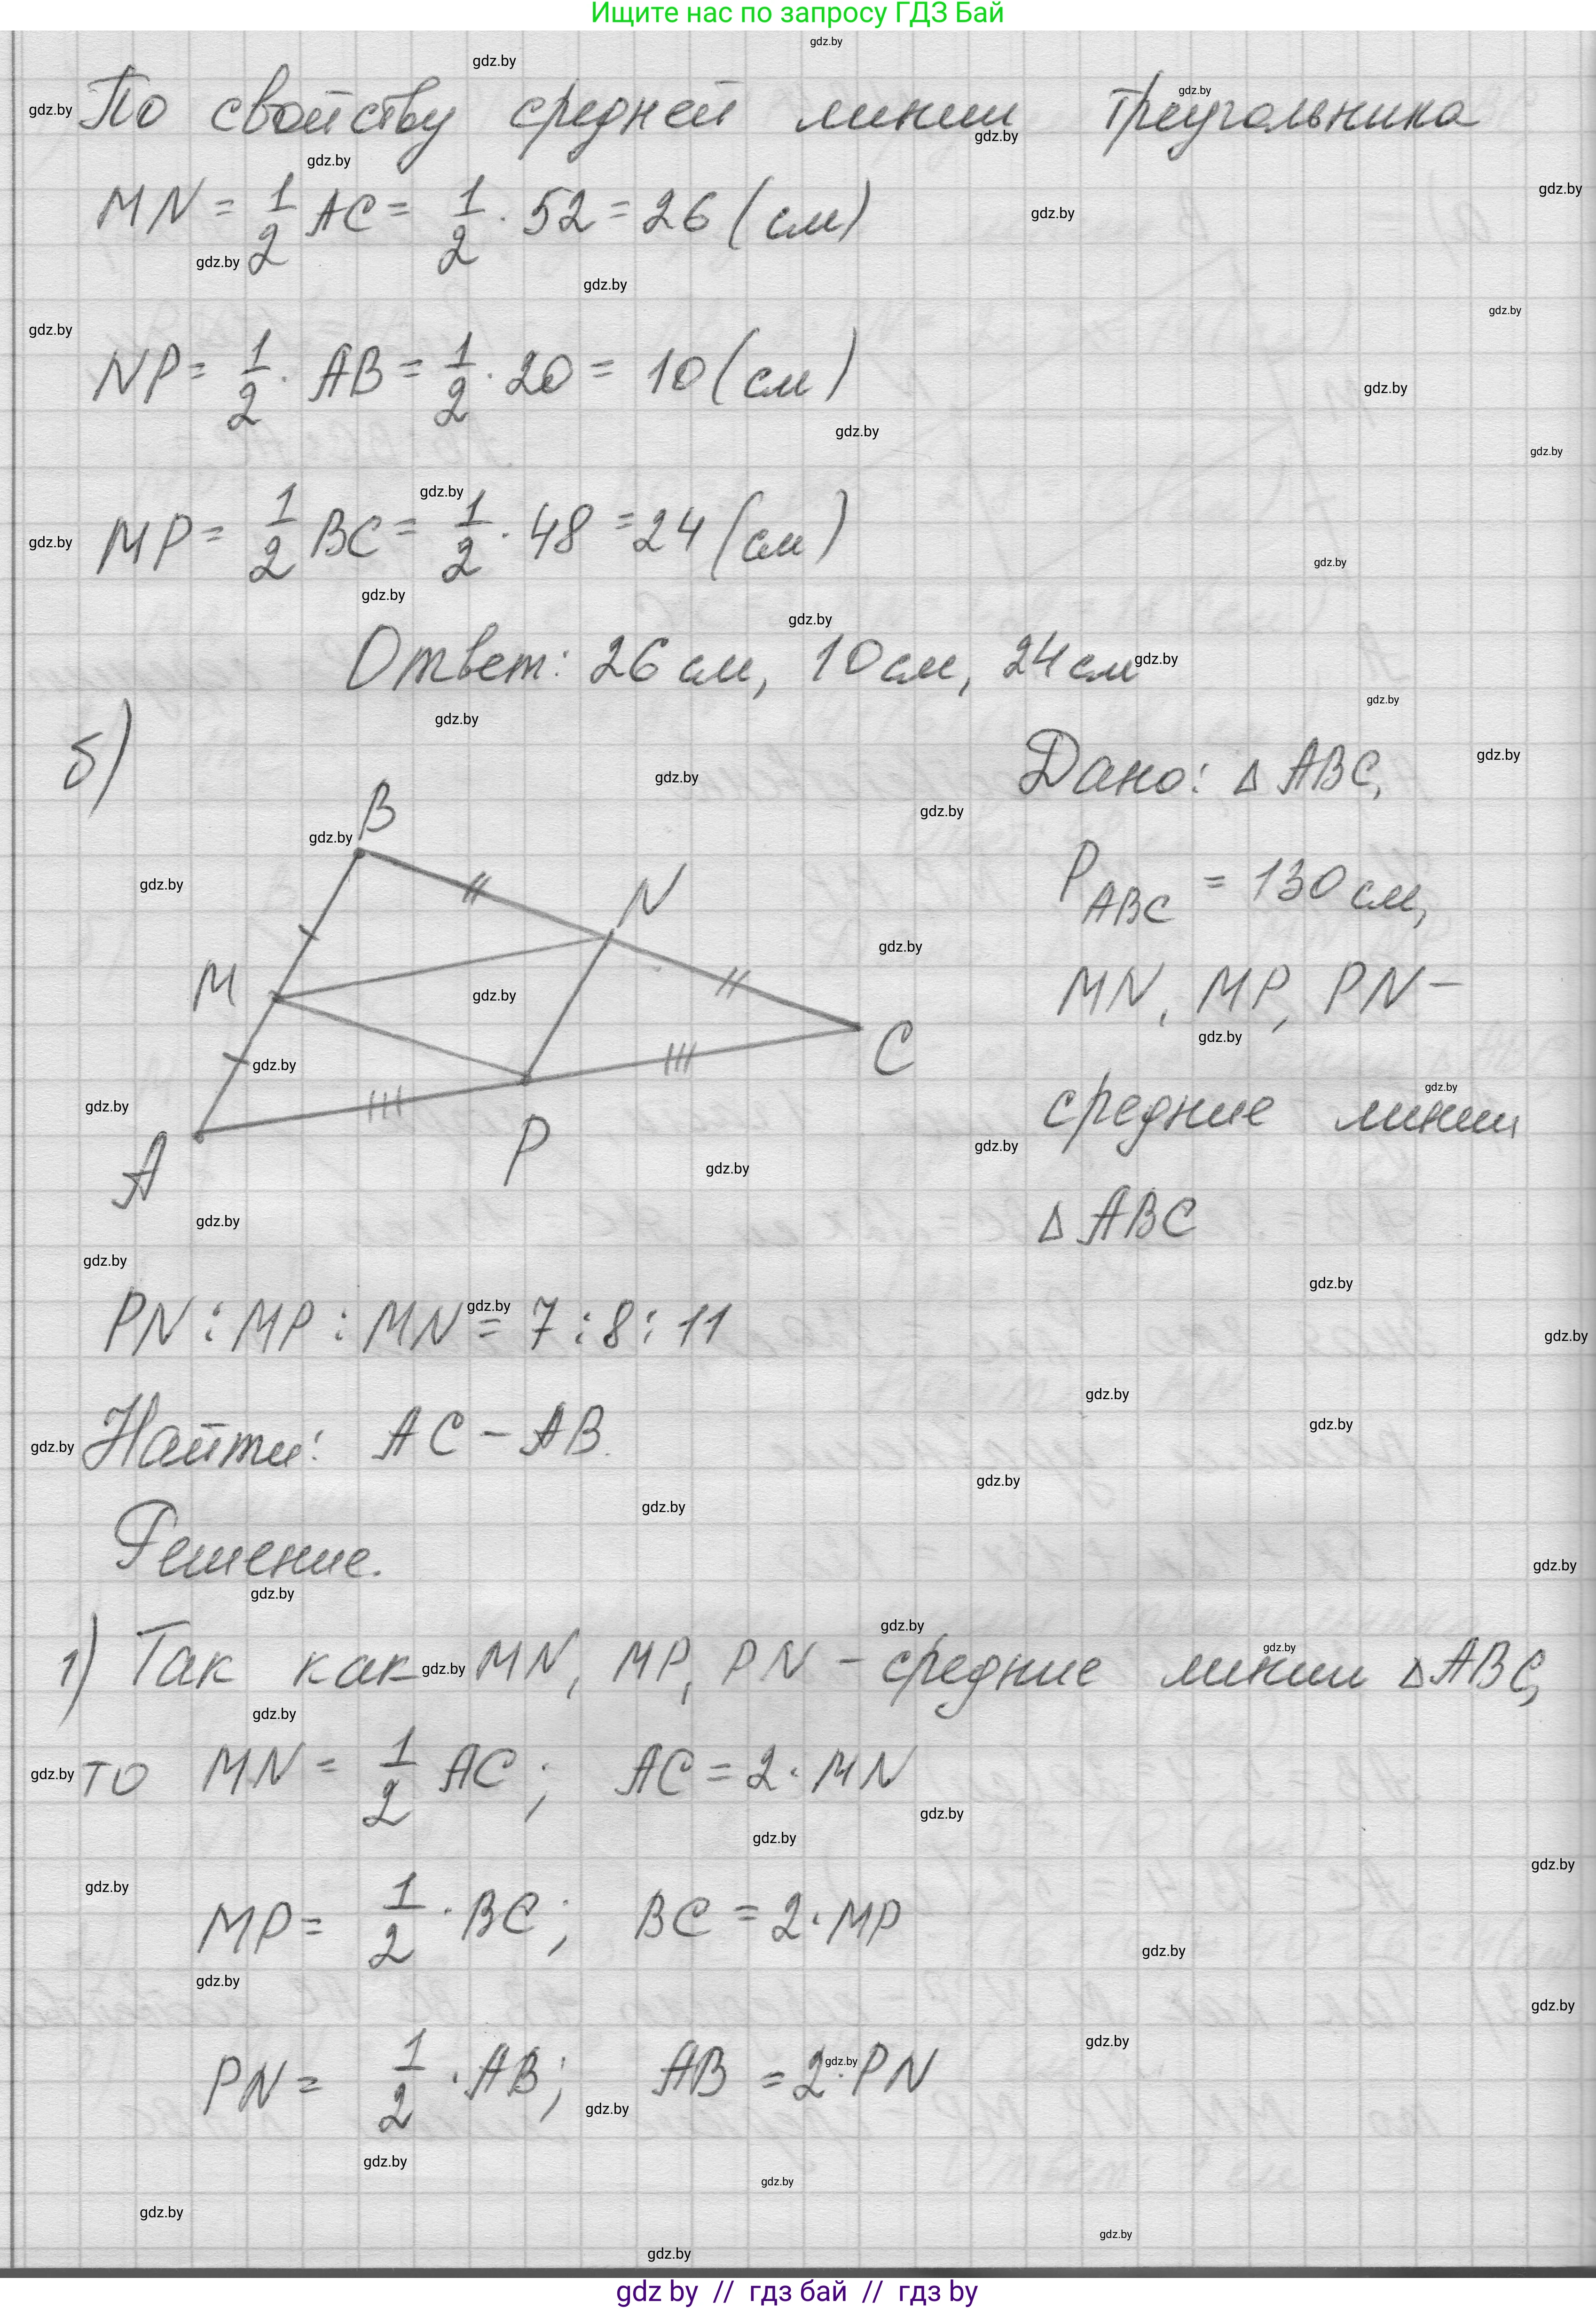 Ищите нас по запросу ГДЗ Бай
По свойству средней линии треугольника
MN = 1/2 AC = 1/2 · 52 = 26 (см)
NP = 1/2 · AB = 1/2 · 20 = 10 (см)
MP = 1/2 BC = 1/2 · 48 = 24 (см)
Ответ: 26 см, 10 см, 24 см
б)
B
N
M
C
A
P
Дано: Δ ABC,
P ABC = 130 см,
MN, MP, PN –
средние линии
Δ ABC
PN : MP : MN = 7 : 8 : 11
Найти: AC – AB.
Решение.
1) Так как MN, MP, PN – средние линии Δ ABC,
то MN = 1/2 AC ; AC = 2 · MN
MP = 1/2 · BC ; BC = 2 · MP
PN = 1/2 · AB ; AB = 2 · PN
gdz by // гдз бай // гдз by